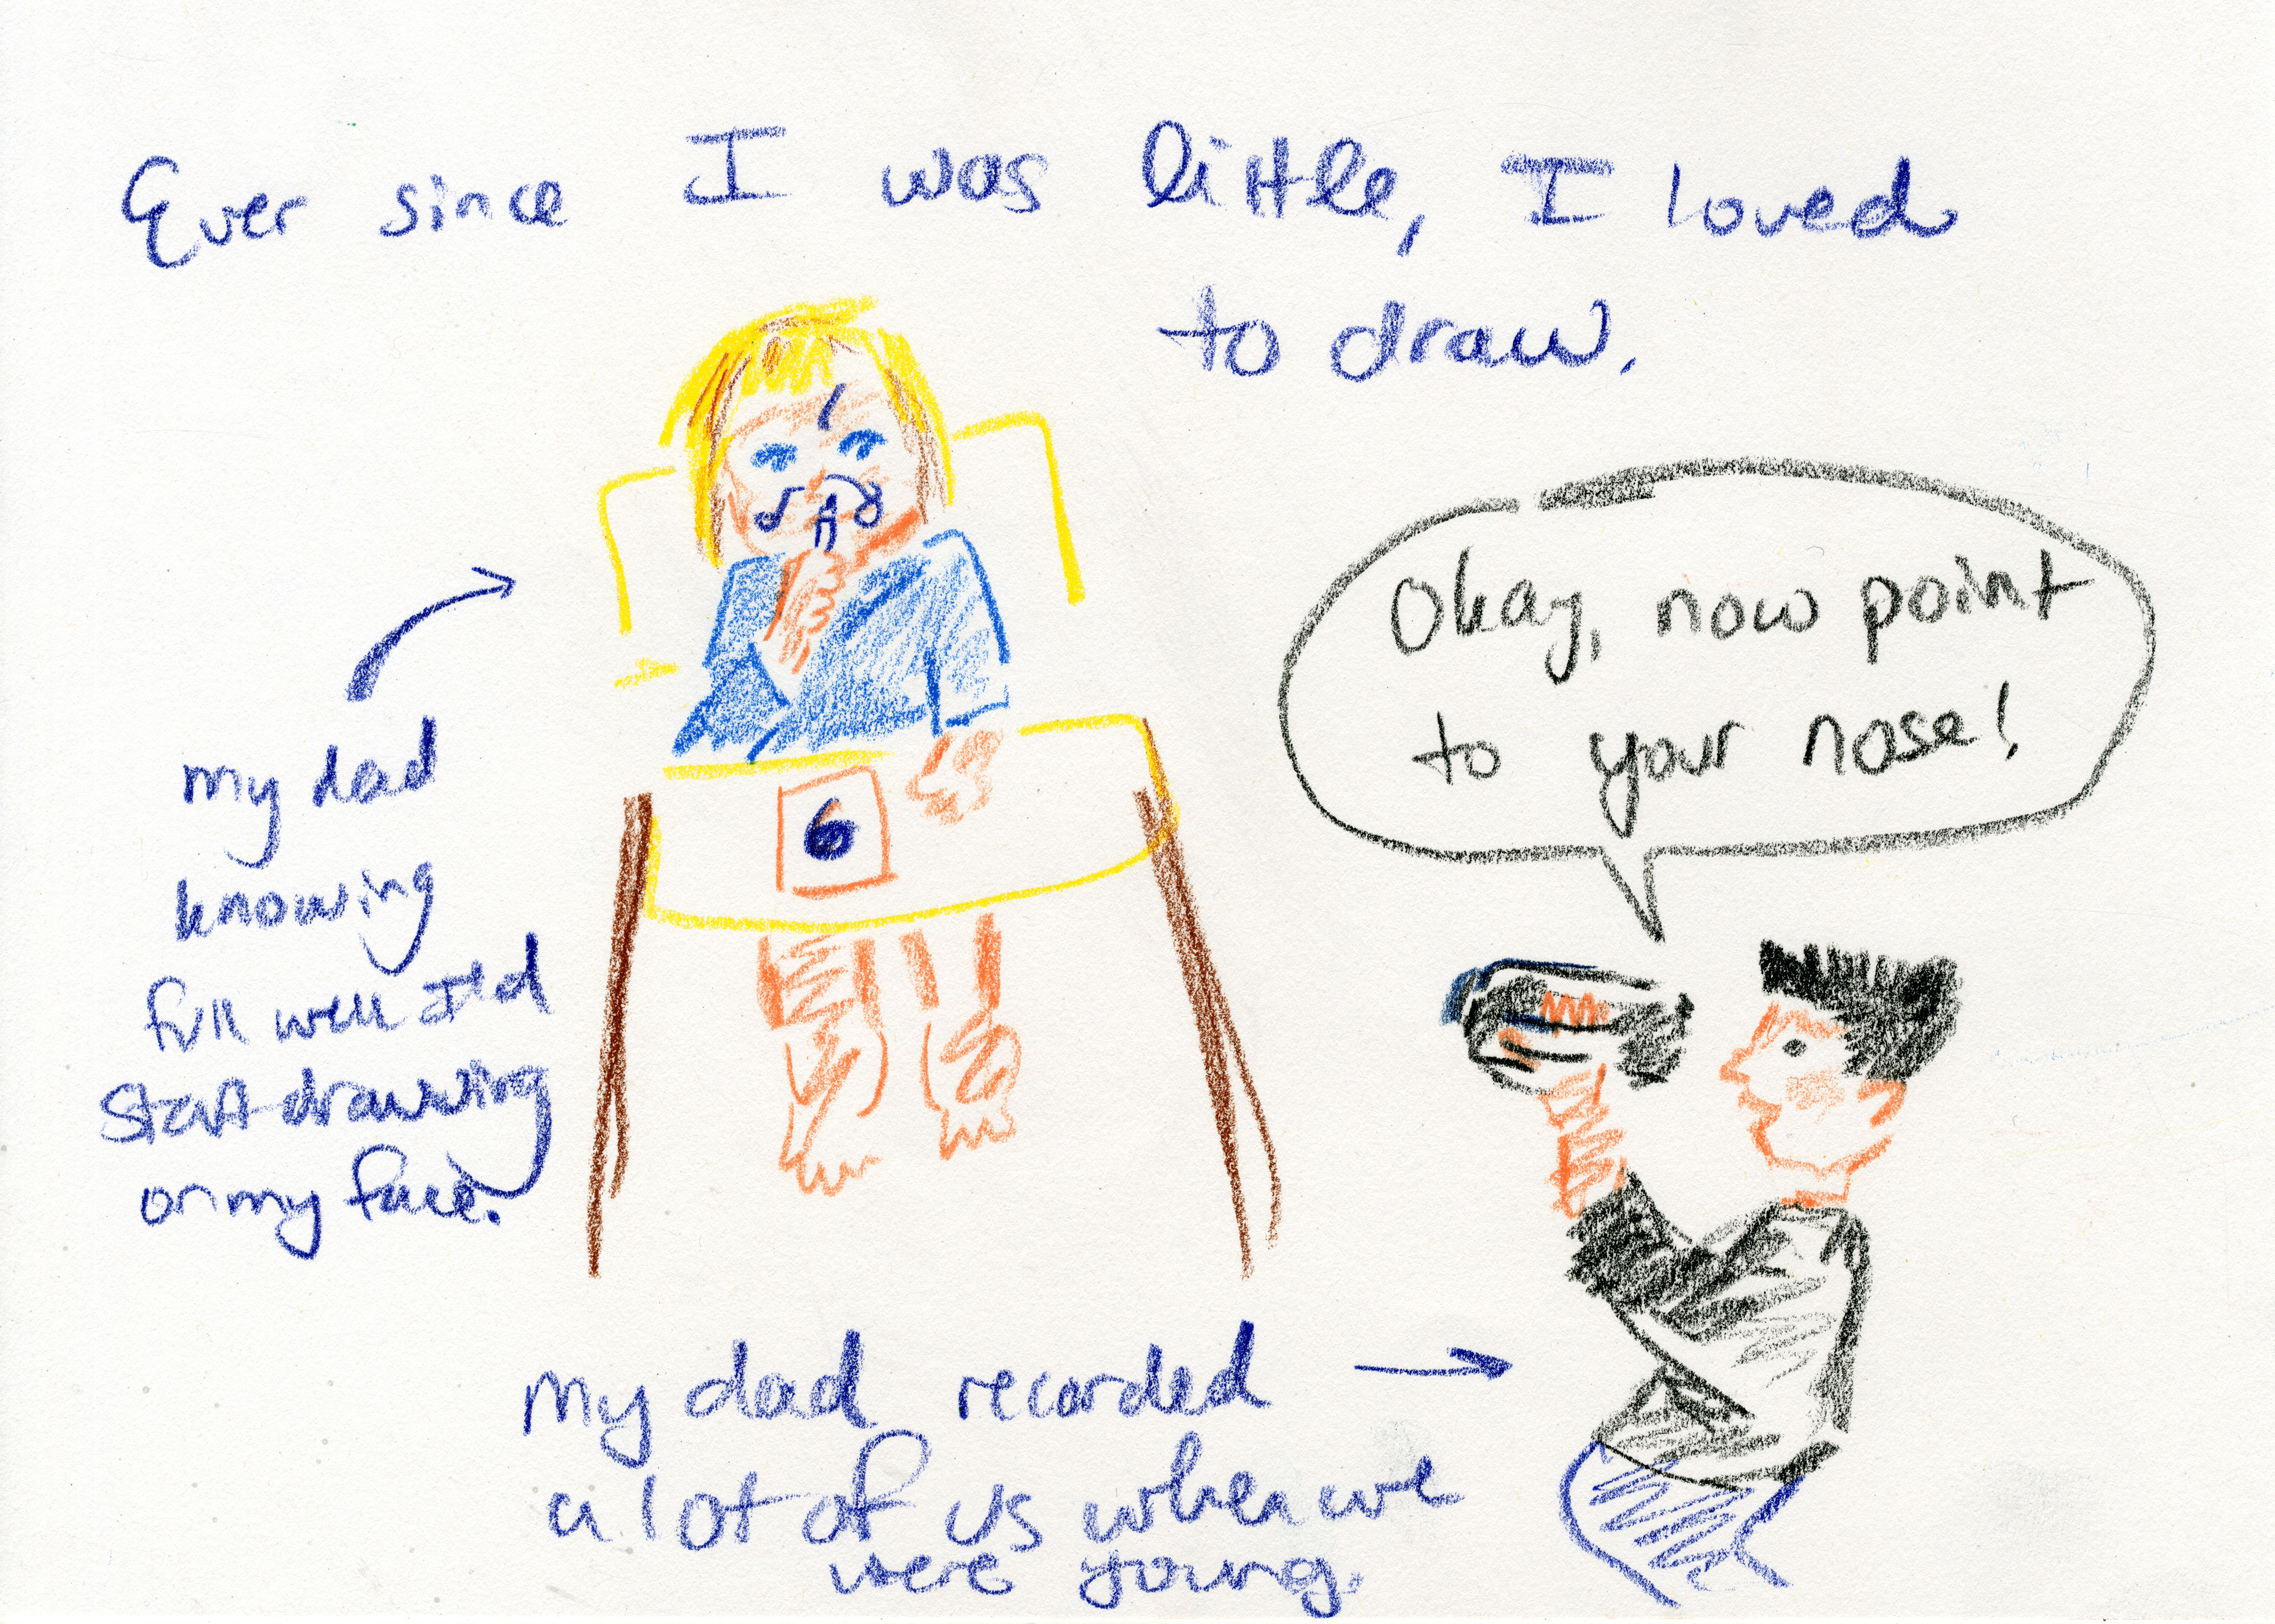 Ever since I was little, I loved
to draw.
Okay, now point
to your nose!
my dad
knowing
full well I'd
start drawing
on my face.
6
My dad recorded
a lot of us when we
were young.